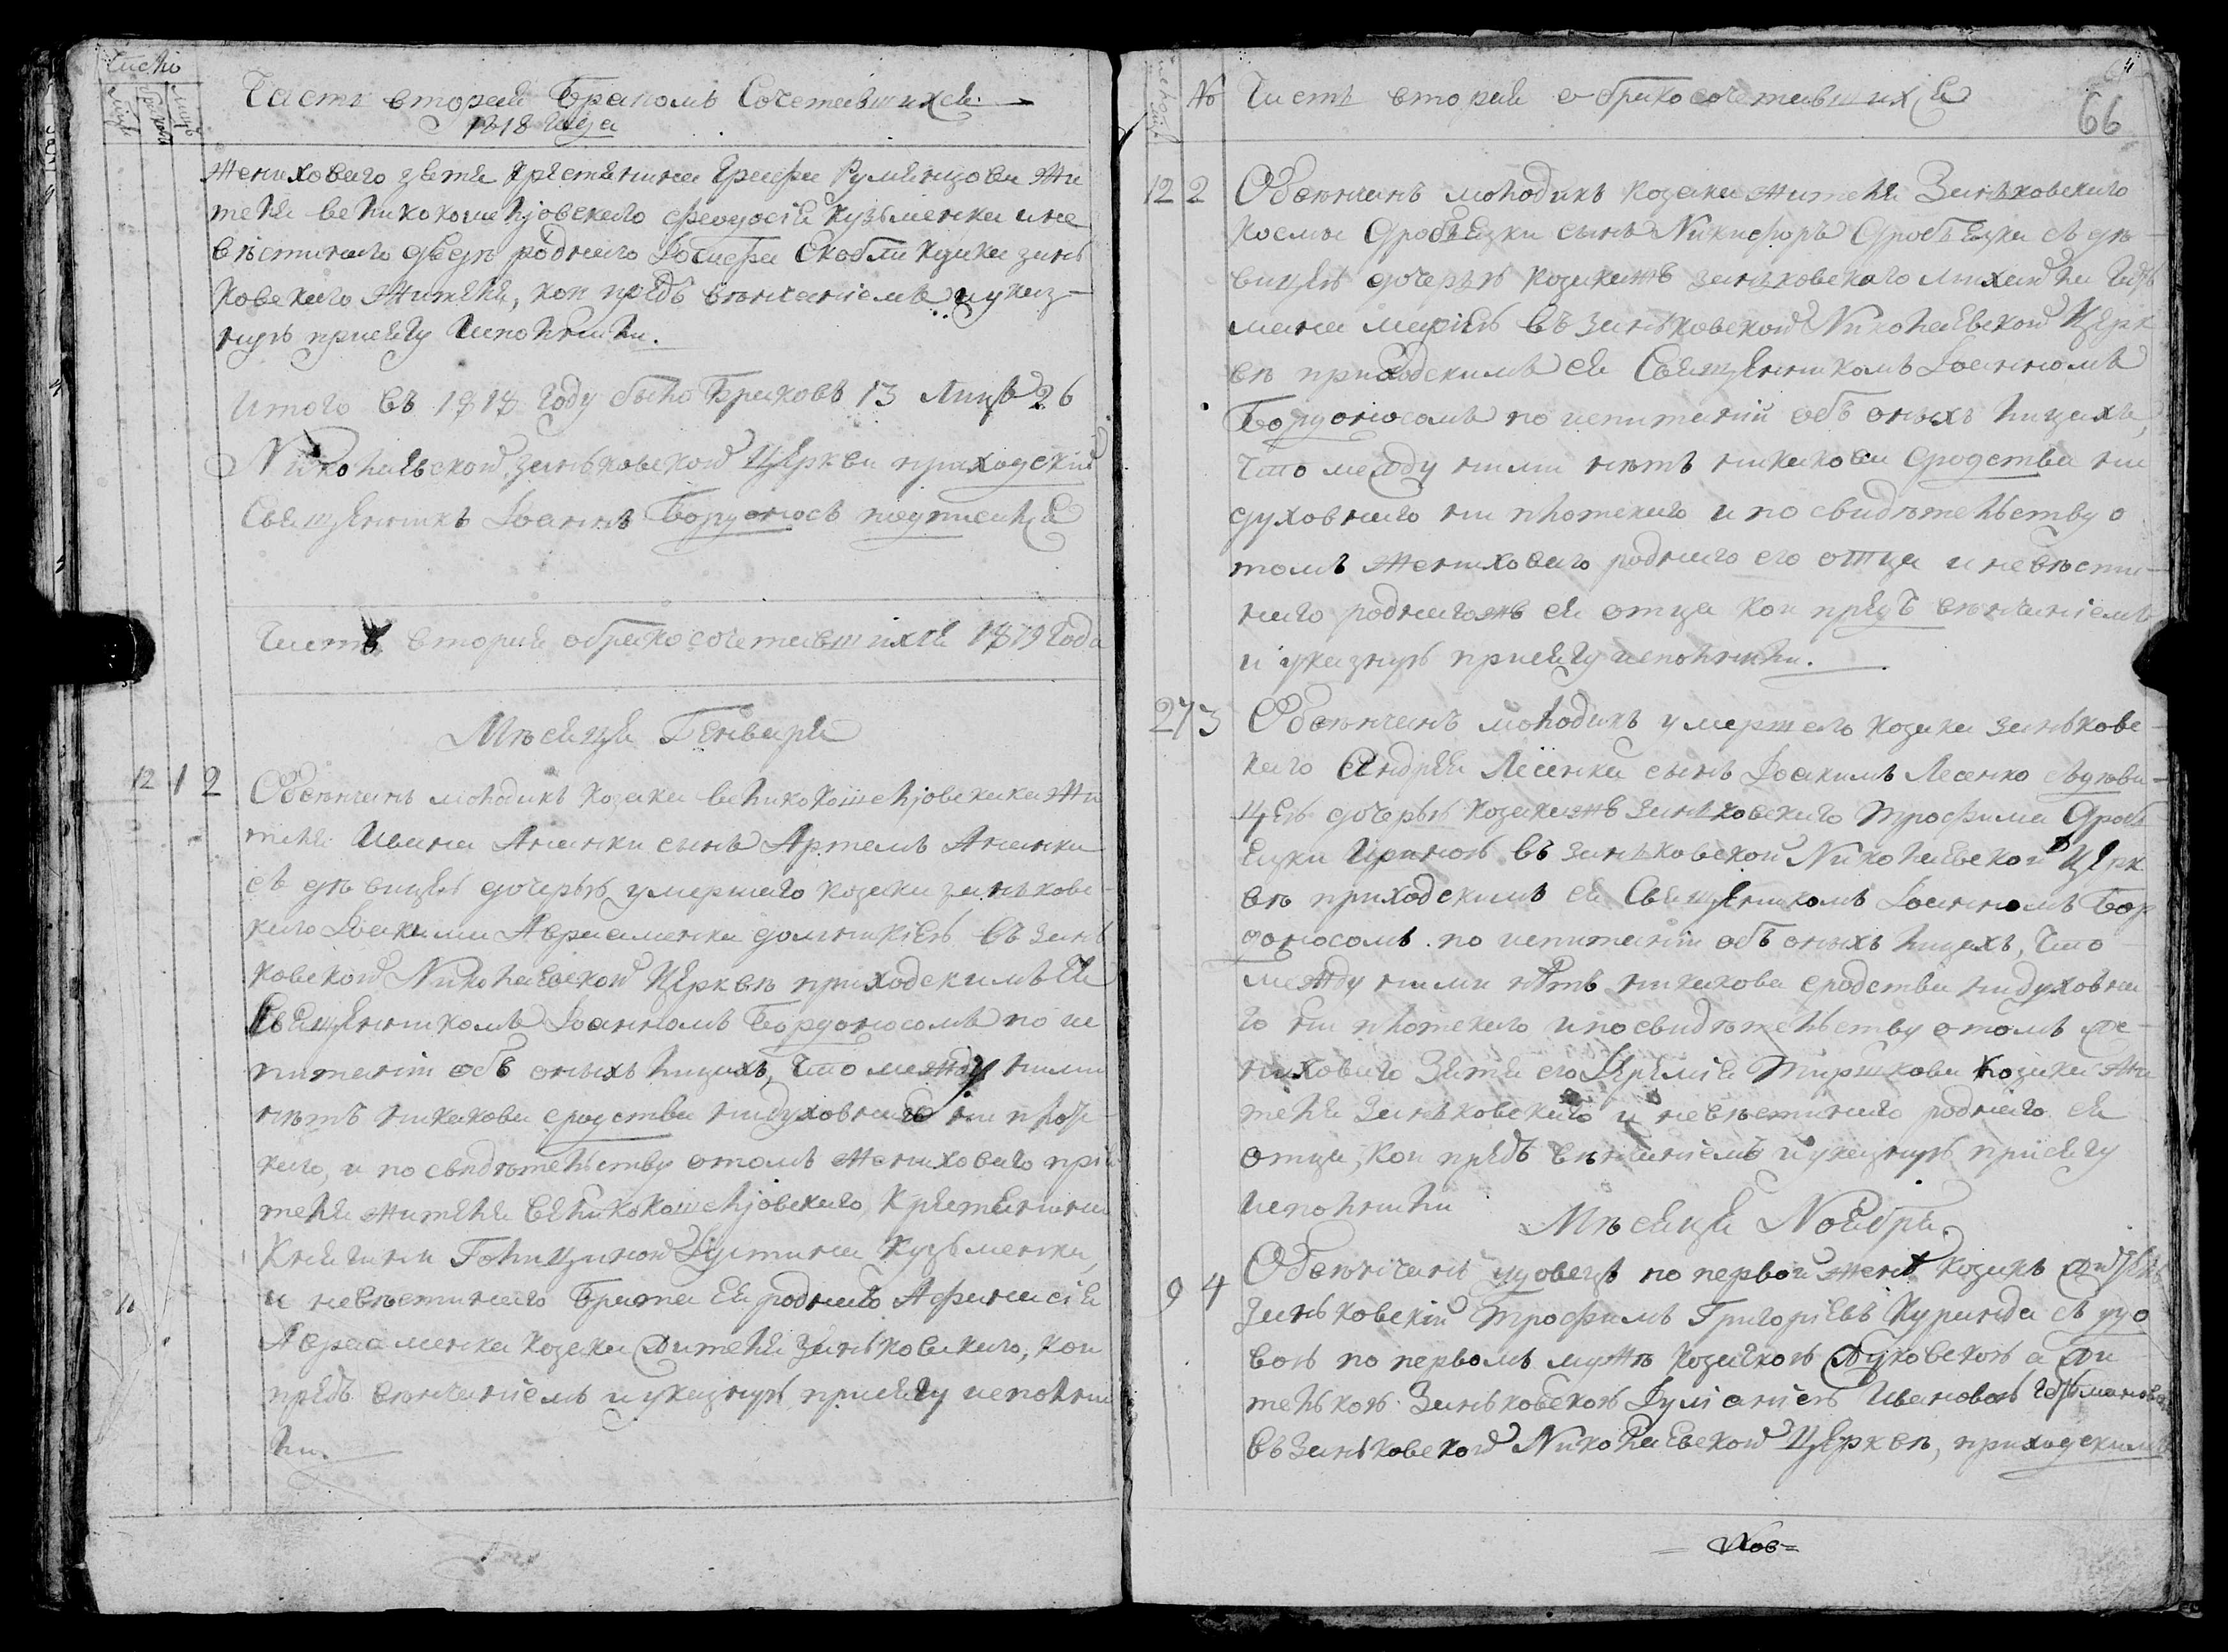 Число
Часть вторая Бракомъ Сочетавшихся.
1818 года
женихового зятя крестянина Графа Румянцова жи
теля великокошелювского Феодосія Кузьменка и не
вѣстиного дѣда родного Іосифа зинь
ковского жителя, кои предъ вѣнчаніемъ и указ-
ную присягу исполнили.
Итого въ 1818 году было Браковъ 13 лицъ 26
Николаевской зиньковской Церкви приходскій
Священникъ Іоаннъ Бордоносъ подписался
Часть вторая о бракосочетавшихся 1819 года
Мѣсяца Генваря
12 1 2 Обвѣнчанъ молодикъ козака великокошелювскаго жи
теля Ивана Ананки сынъ Артемъ Ананка
съ дѣвицею дочерью умершаго козака зинькове
кого Іоакима Авраменка домникіею въ Зинь
ковской Николаевской Церквѣ приходскимъ ея
Священникомъ Іоанномъ Бордоносомъ по ис
питаніи объ оныхъ лицахъ, что между ними
нѣтъ никакова сродства ни духовнаго ни плот
кого, и по свидѣтельству о томъ женихового прія
теля жителя великокошелювского Крестянина
Княгини Голициной Іустина Кузьменка,
и невѣстиного брата ея родного Афанасія
Авраменка козака жителя Зиньковского, кои
предъ вѣнчаніемъ и указную присягу исполни
ли.
№ Часть вторая о бракосочетавшихся
66
12 2 Обвѣнчанъ молодикъ козака жителя Зиньковского
Космы Дробязки сынъ Никифоръ Дробязка съ дѣ
вицею дочерью козака жъ зиньковского Михаила Гер
мана маріею въ зиньковской Николаевской Церк
вѣ приходскимъ ея Священникомъ Іоанномъ
Бордоносомъ по испитаніи объ оныхъ лицахъ,
что между ними нѣтъ никакова сродства ни
духовнаго ни плотского и по свидѣтельству о
томъ женихового родного его отца и невѣсти-
ного родного жъ ея отца кои предъ вѣнчаніемъ
и указную присягу исполнили.
27 3 Обвѣнчанъ молодикъ умершего козака зинькове
кого Андрея Лесенка сынъ Іоакимъ Лесенко съ дѣви-
цею дочерью козака жъ зиньковского Трофима Дроб
язки Ириною въ зиньковской Николаевской Церк
вѣ приходскимъ ея Священикомъ Іоанномъ Бор
доносомъ по испитаніи объ оныхъ лицахъ, что
между ними нѣтъ никакова сродства ни духовна
го ни плотского и по свидѣтельству о томъ же-
нихового Зятя его Іереміи Тиршкова козака жи
теля зиньковского и невѣстиного родного ея
отца, кои предъ вѣнчаніемъ и указную присягу
исполнили
Мѣсяца Ноября
9 4 Обвѣнчанъ удовецъ по первой женѣ козакъ житель
зиньковскій Трофимъ Григоріевъ Куринда съ удо
вою по первомъ мужѣ козачкою а жи
телькою Зиньковскою Іуліаніею Ивановою Германовою
въ Зиньковской Николаевской Церквѣ, приходскимъ